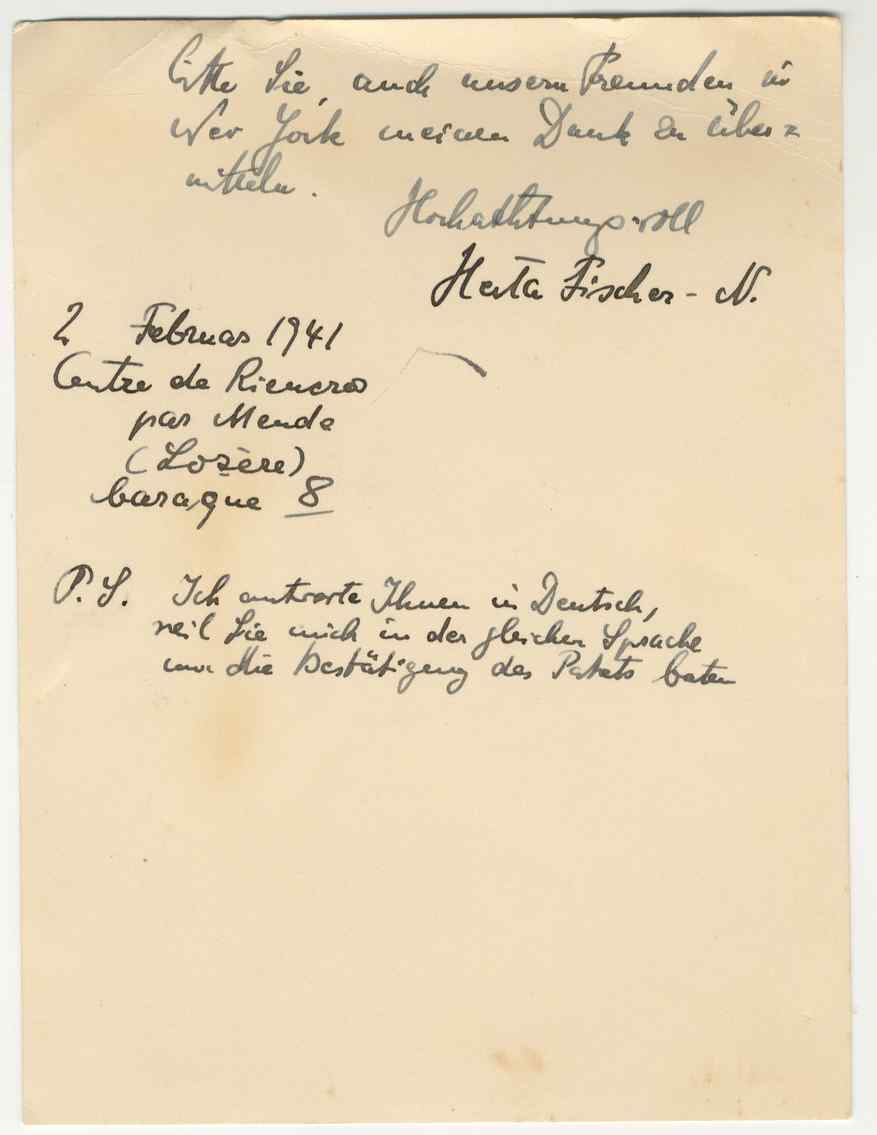 bitte Sie, auch unsern Freunden in
New York meinen Dank zu über=
mitteln.
Hochachtungsvoll
Herta Fischer - N.
2 Februar 1941
Centre de Rieucros
par Mende
(Lozère)
baraque 8
P.S. Ich antworte Ihnen in Deutsch,
weil Sie mich in der gleichen Sprache
um die Bestätigung des Pakets baten